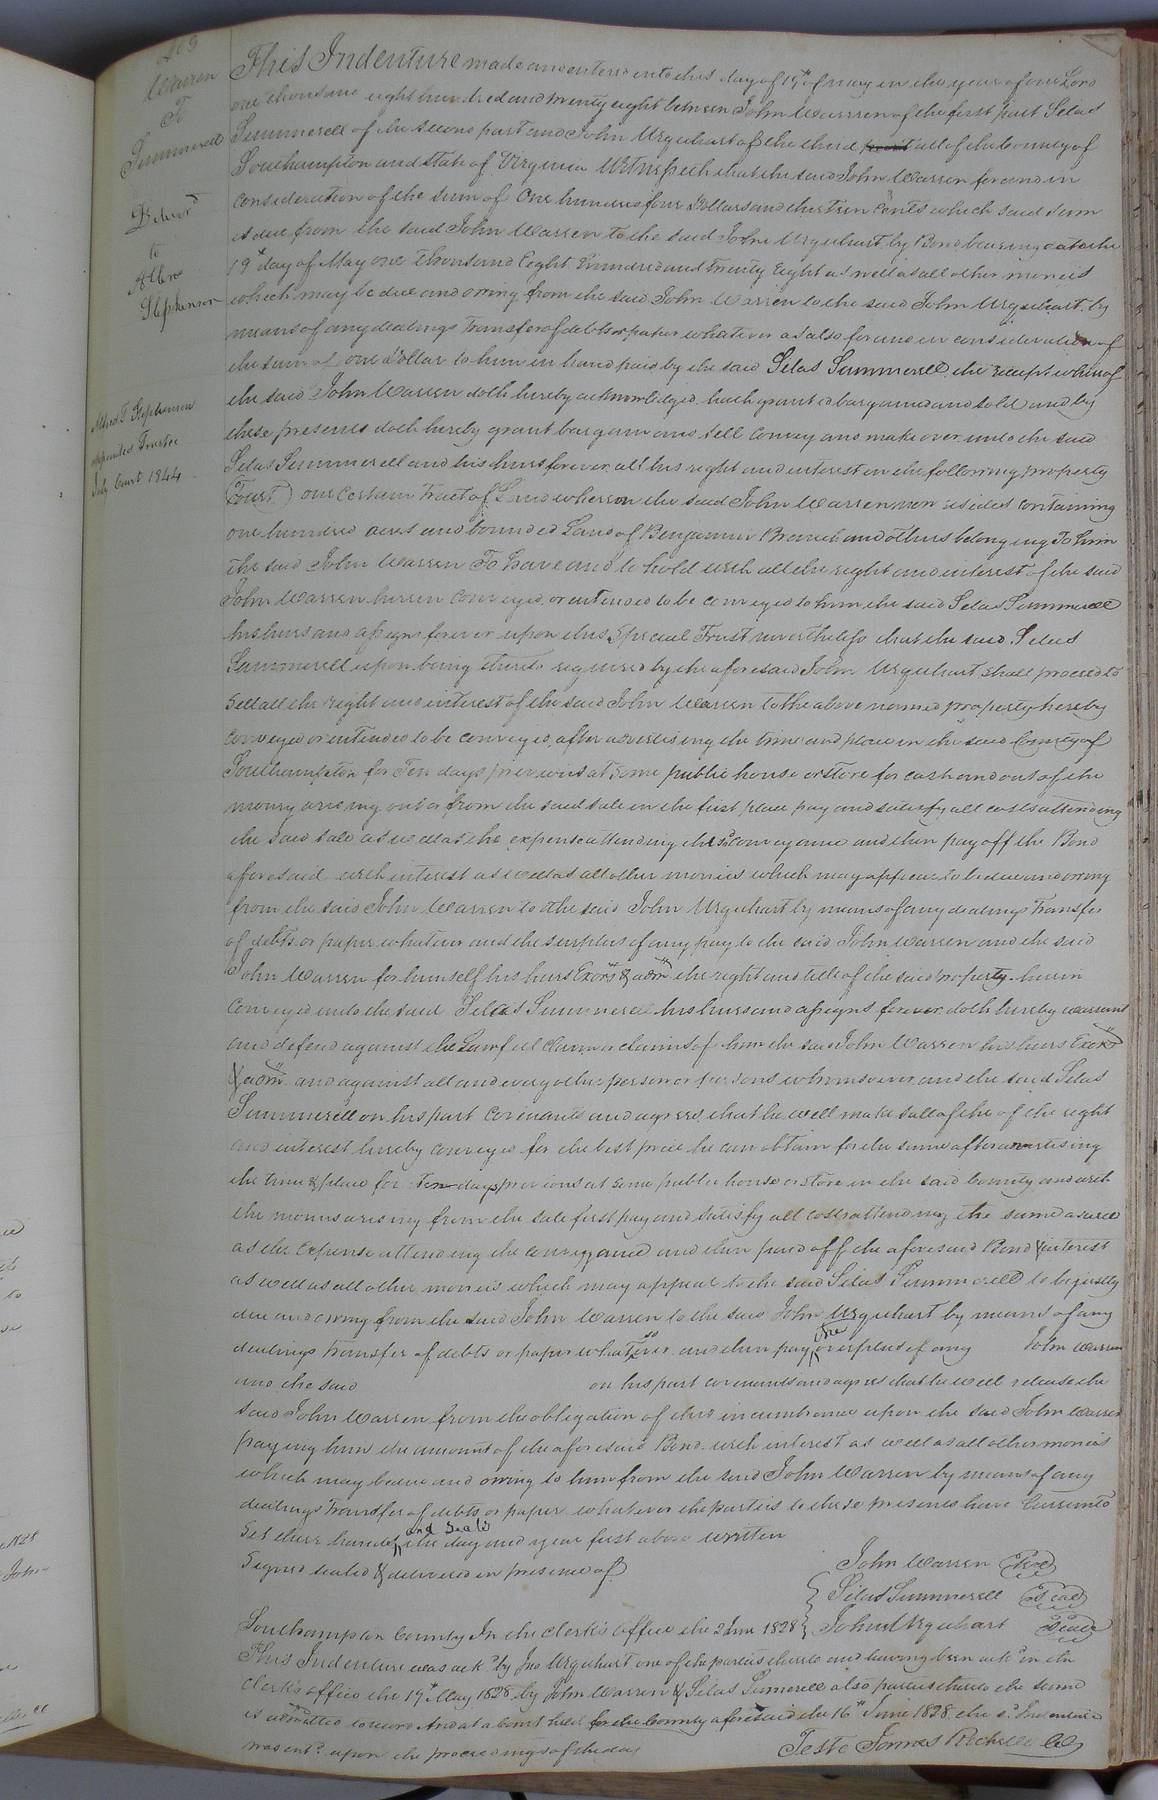 Warren
To
Summerell
Deliver'd
to
Albro
Stephenson
Alfred T Stephenson
appointed Trustee
July Court 1844
This Indenture made and entered into this day of 19th of may in the year of our Lord
one thousand eight hundred and twenty eight between John Warren of the first part Silas
Summerell of the second part and John Urquhart of the third part all of the County of
Southampton and State of Virginia Witnesseth that the said John Warren for and in
consideration of the sum of One hundred four Dollars and thirteen Cents which said sum
is due from the said John Warren to the said John Urquhart by Bond bearing date the
19th day of May one thousand Eight hundred and twenty Eight as well as all other monies
which may be due and owing from the said John Warren to the said John Urquhart by
means of any dealings Transfer of debts or paper whatever as also for and in consideration of
the sum of one Dollar to him in hand paid by the said Silas Summerell the receipt whereof
the said John Warren doth hereby acknowledged hath granted bargained and sold and by
these presents doth hereby grant bargain and sell convey and make over unto the said
Silas Summerell and his heirs forever all his right and interest in the following property
(Towit) one Certain Tract of Land whereon the said John Warren now resides containing
one hundred acres and bounded Land of Benjamin Branch and others belonging To him
the said John Warren To have and to hold with all the right and interest of the said
John Warren herein conveyed or intended to be conveyed to him the said Silas Summerell
his heirs and assigns forever upon this Special Trust nevertheless that the said Silas
Summerell upon being thereto required by the aforesaid John Urquhart shall proceed to
sell all the right and interest of the said John Warren to the above named property hereby
conveyed or intended to be conveyed after advertising the time and place in the said County of
Southampton for Ten days previous at some public house or store for cash and out of the
money arising out or from the said sale in the first place pay and satisfy all costs attending
the said sale as well as the expense attending this conveyance and then pay off the Bond
aforesaid with interest as well as all other monies which may appear to be due and owing
from the said John Warren to the said John Urquhart by means of any dealings Transfer
of debts or paper whatever and the surplus if any pay to the said John Warren and the said
John Warren for himself his heirs Exors & adm the right and title of the said property herein
Conveyed unto the said Silas Summerell his heirs and assigns forever doth hereby warrant
and defend against the Lawful claim or claims of him the said John Warren his heirs Exors
& adm and against all and every other person or persons whomsoever and the said Silas
Summerell on his part covenants and agrees that he will make sale of the of the right
and interest hereby conveyed for the best price he can obtain for the same after advertising
the time & place for Ten days previous at some public house or store in the said County and with
the monies arising from the sale first pay and satisfy all costs attending the same as well
as the Expense attending the conveyance and then paid off the aforesaid Bond & interest
as well as all other monies which may appear to the said Silas Summerell to be justly
due and owing from the said John Warren to the said John Urquhart by means of any
dealings Transfer of debts or paper whatsoever and then pay the overplus if any John Warren
and the said on his part covenants and agrees that he will release the
said John Warren from the obligation of this incumbrance upon the said John Warren
paying him the amount of the aforesaid Bond with interest as well as all other monies
which may be due and owing to him from the said John Warren by means of any
dealings Transfer of debts or paper whatever the parties to these presents have hereunto
Set their hands and seals the day and year first above written
Signed sealed & delivered in presence of
John Warren Seal
Silas Summerell Seal
John Urquhart Seal
Southampton County In the Clerk's office the 2 June 1828
This Indenture was ack'd by Jno Urquhart one of the parties thereto and having been ack'd in the
Clerk's office the 19th May 1828 by John Warren & Silas Sumerell also parties thereto the same
is admitted to record And at a Court held for the County aforesaid the 16th June 1828 the sd Indenture
was entd upon the proceedings of the day
Teste James Rochelle Cl